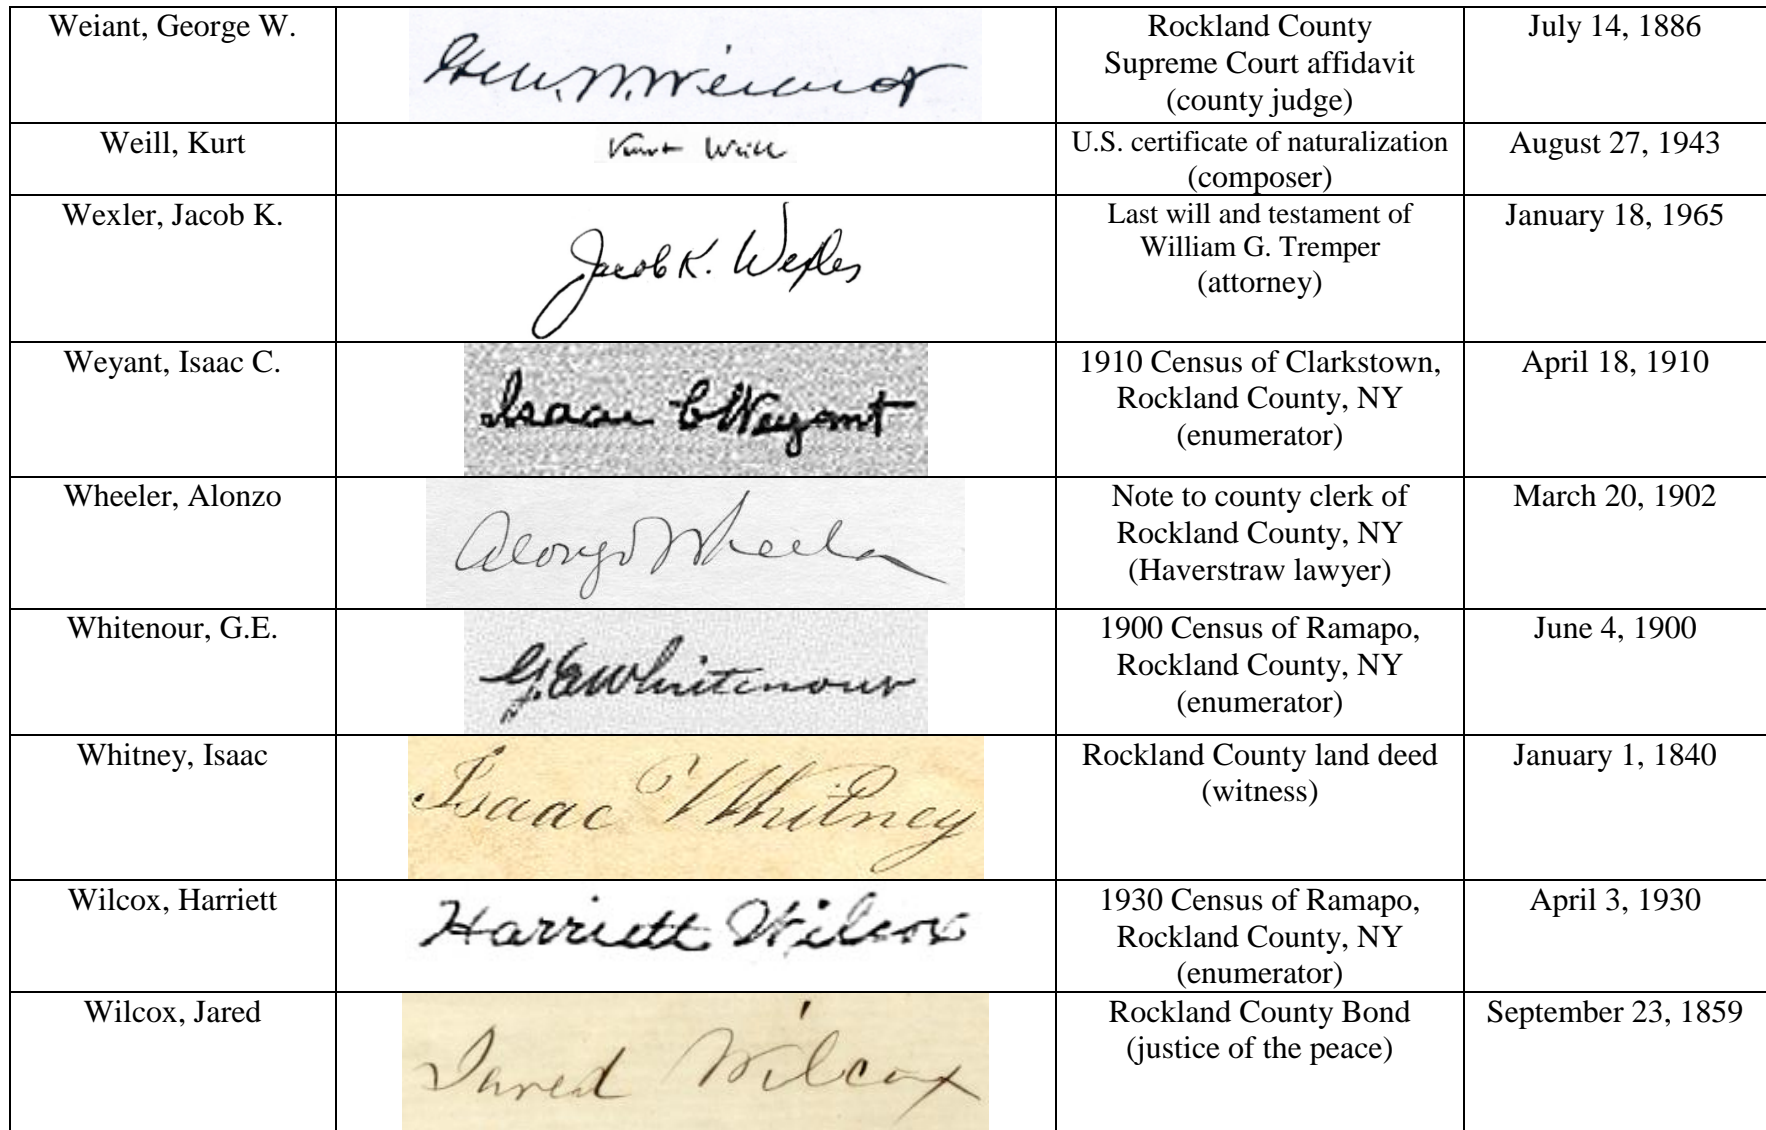 Weiant, George W.
Geo. W. Weiant
Rockland County
Supreme Court affidavit
(county judge)
July 14, 1886
Weill, Kurt
Kurt Weill
U.S. certificate of naturalization
(composer)
August 27, 1943
Wexler, Jacob K.
Jacob K. Wexler
Last will and testament of
William G. Tremper
(attorney)
January 18, 1965
Weyant, Isaac C.
Isaac C Weyant
1910 Census of Clarkstown,
Rockland County, NY
(enumerator)
April 18, 1910
Wheeler, Alonzo
Alonzo Wheeler
Note to county clerk of
Rockland County, NY
(Haverstraw lawyer)
March 20, 1902
Whitenour, G.E.
G.E. Whitenour
1900 Census of Ramapo,
Rockland County, NY
(enumerator)
June 4, 1900
Whitney, Isaac
Isaac Whitney
Rockland County land deed
(witness)
January 1, 1840
Wilcox, Harriett
Harriett Wilcox
1930 Census of Ramapo,
Rockland County, NY
(enumerator)
April 3, 1930
Wilcox, Jared
Jared Wilcox
Rockland County Bond
(justice of the peace)
September 23, 1859